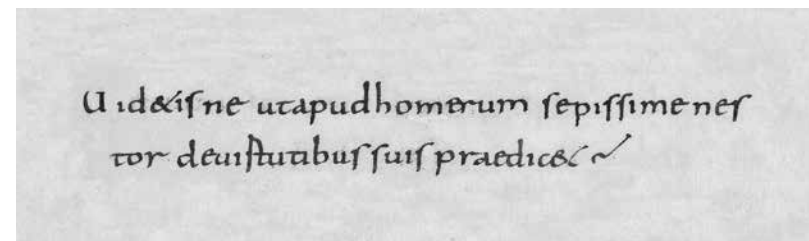 Uid&isne utapudhomerum sepissime nes
tor deuistutibus suis praedic&